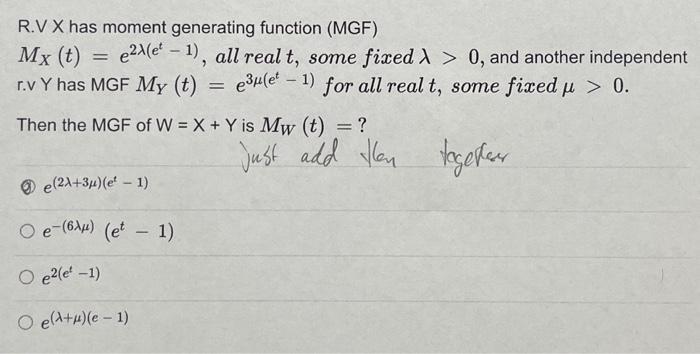 R.V X has moment generating function (MGF)
M_X (t) = e^{2λ(e^t − 1)}, all real t, some fixed λ > 0, and another independent
r.v Y has MGF M_Y (t) = e^{3μ(e^t − 1)} for all real t, some fixed μ > 0.
Then the MGF of W = X + Y is M_W (t) = ?
just add them together
e^{(2λ+3μ)(e^t − 1)}
e^{−(6λμ)} (e^t − 1)
e^{2(e^t −1)}
e^{(λ+μ)(e − 1)}